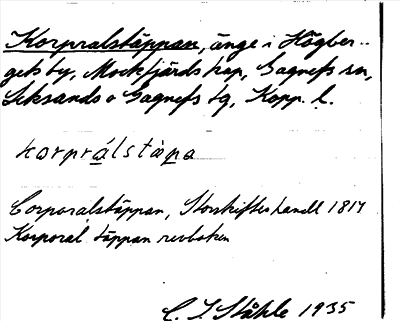 Korpralstäppan, änge i Högber-
gets by, Mockfjärds kap, Gagnefs sn,
Leksands o Gagnefs tg, Kopp. l.
korprálstàpa
Corporalstäppan, Storskifteshandl 1817
Korporal täppan revboken
C. I. Ståhle 1935